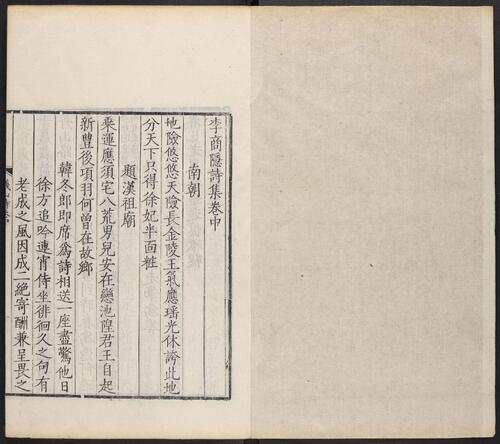 李商隱詩集卷中
南朝
地險悠悠天險長金陵王氣應瑤光休誇此地
分天下只得徐妃半面粧
題漢祖廟
乘運應須宅八荒男兒安在戀池隍君王自起
新豐後項羽何曾在故鄉
韓冬郎即席爲詩相送一座盡驚他日
徐方追吟連宵侍坐徘徊久之句有
老成之風因成二絶寄酬兼呈畏之